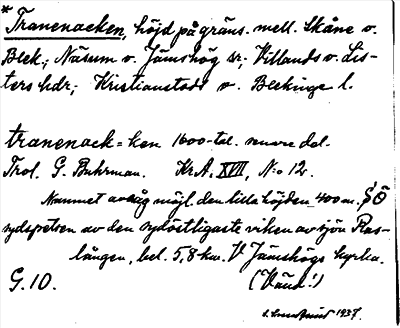 * Tranenacken, höjd på gräns. mell. Skåne o.
Blek.; Näsum o. Jämshög sr; Villands o. Lis-
ters hdr; Kristianstads o. Blekinge l.
tranenack = ken 1600-tal. senare del.
Trol. G. Buhrman. Kr.A. XVII, N:o 12.
Namnet avsåg möjl. den lilla höjden 400 m. SÖ
sydspetsen av den sydöstligaste viken av sjön Ras-
lången, bel. 5,8 km. V Jämshögs kyrka.
G. 10. (Vänd!)
1937.